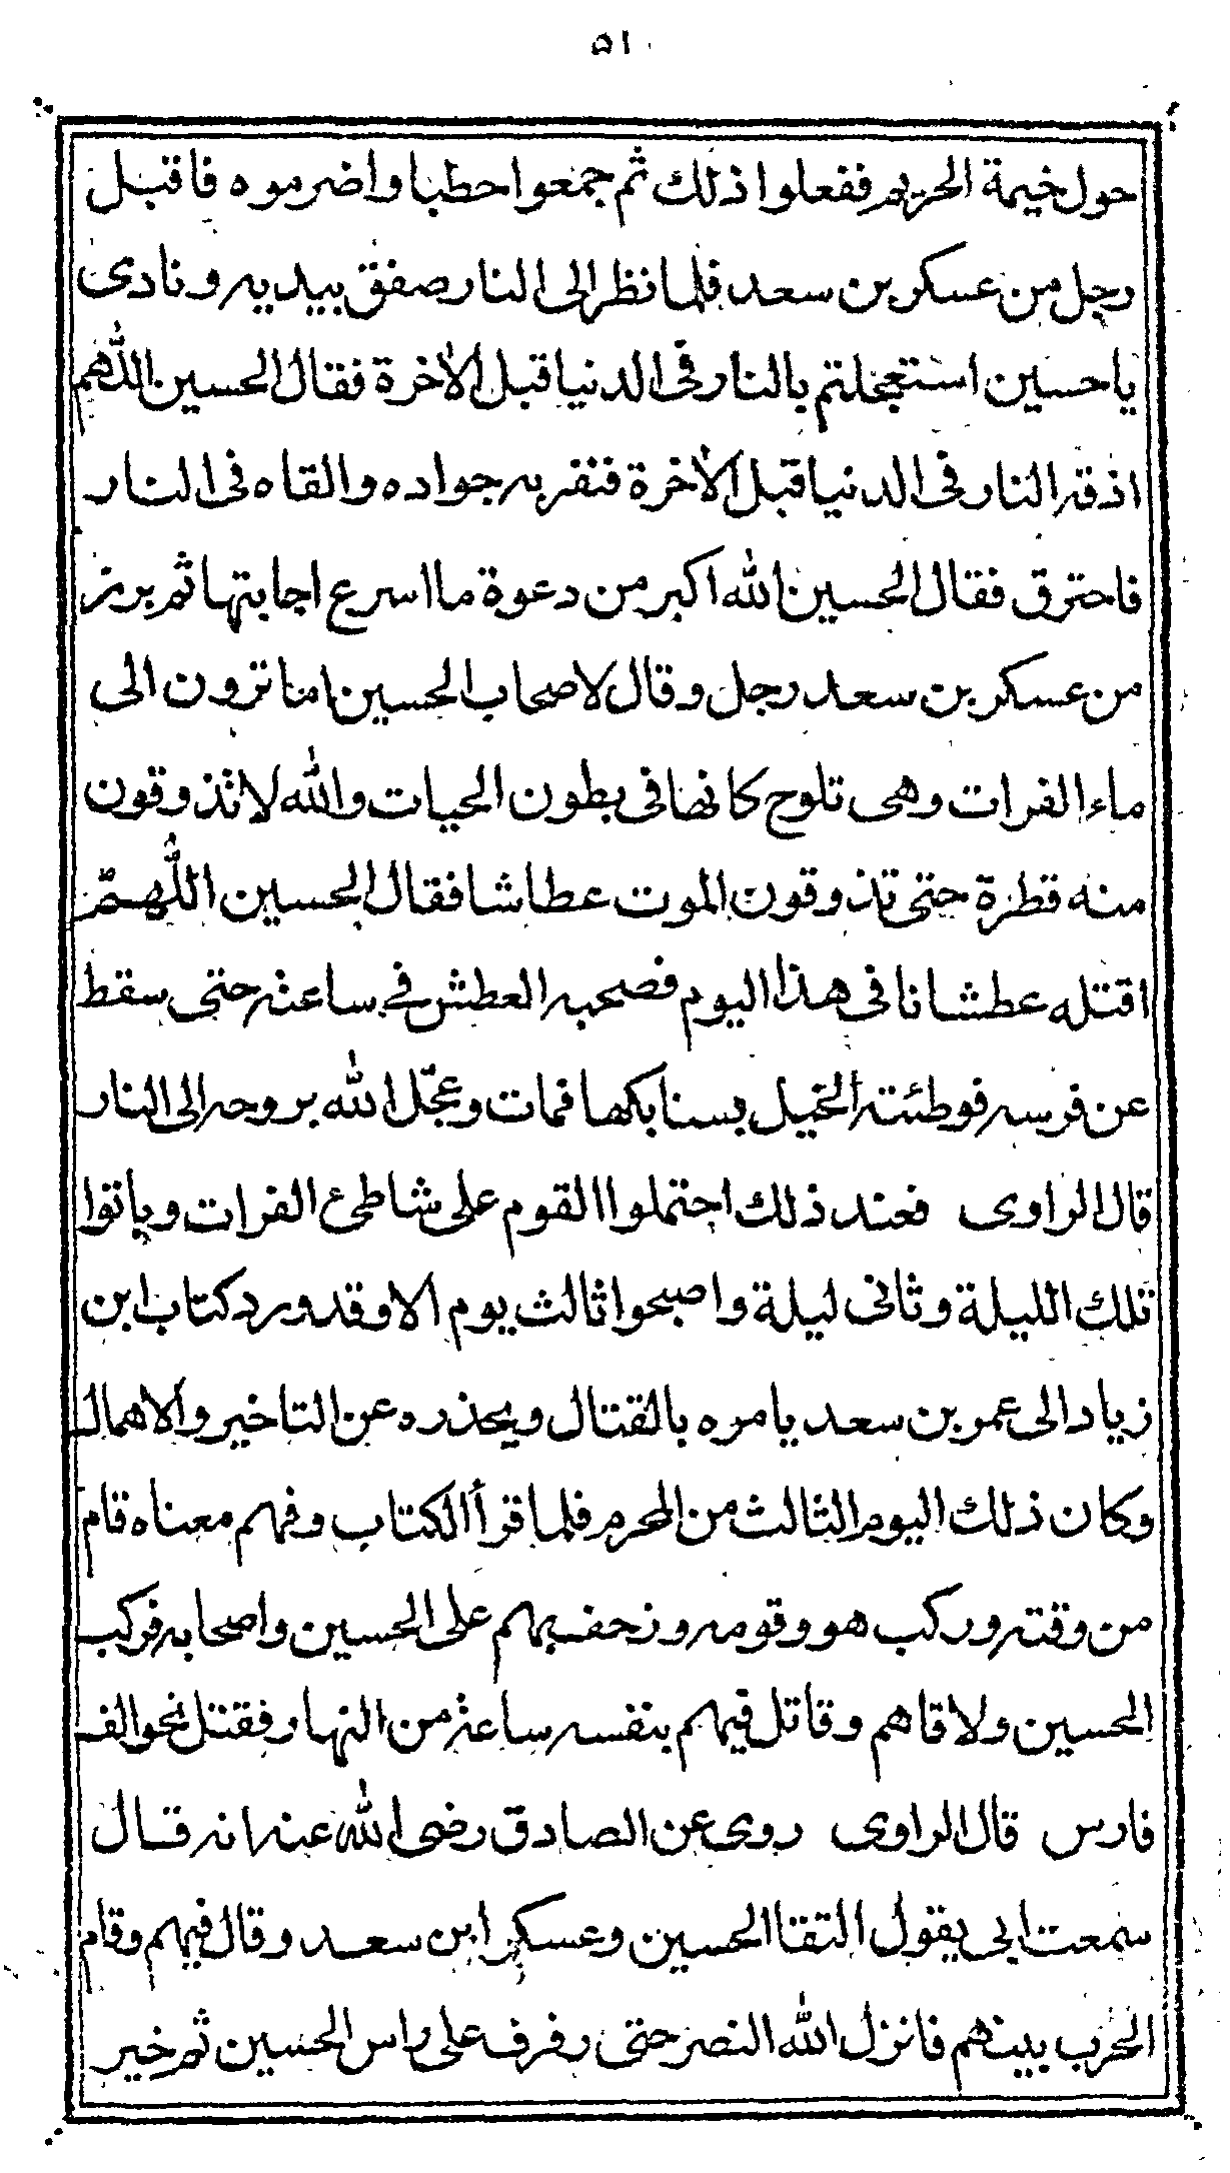 ٥١
حول خيمة الحريم ففعلوا ذلك ثم جمعوا حطبا واضرموه فاقبل
رجل من عسكر بن سعد فلما نظر الى النار صفق بيديه ونادى
ياحسين استعجلتم بالنار فى الدنيا قبل الاخرة فقال الحسين اللهم
اذقه النار فى الدنيا قبل الاخرة فنفر به جواده والقاه فى النار
فاحترق فقال الحسين الله اكبر من دعوة ما اسرع اجابتها ثم برز
من عسكر بن سعد رجل وقال لاصحاب الحسين اما ترون الى
ماء الفرات وهى تلوح كانها فى بطون الحيات والله لا تذوقون
منه قطرة حتى تذوقون الموت عطاشا فقال الحسين اللهم
اقتله عطشانا فى هذا اليوم فصحبه العطش فى ساعته حتى سقط
عن فرسه فوطئته الخيل بسنابكها فمات وعجّل الله بروحه الى النار
قال الراوى فعند ذلك احتملوا القوم على شاطئ الفرات وباتوا
تلك الليلة وثانى ليلة واصبحوا ثالث يوم الا وقد ورد كتاب ابن
زياد الى عمر بن سعد يامره بالقتال ويحذره عن التاخير والاهمال
وكان ذلك اليوم الثالث من المحرم فلما قرأ الكتاب وفهم معناه قام
من وقته وركب هو وقومه وزحف بهم على الحسين واصحابه فركب
الحسين ولاقاهم وقاتل فيهم بنفسه ساعة من النهار فقتل نحو الف
فارس قال الراوى روى عن الصادق رضى الله عنه انه قال
سمعت ابى يقول التقا الحسين وعسكر ابن سعد وقال فيهم وقام
الحرب بينهم فانزل الله النصر حتى رفرف على راس الحسين ثم خير